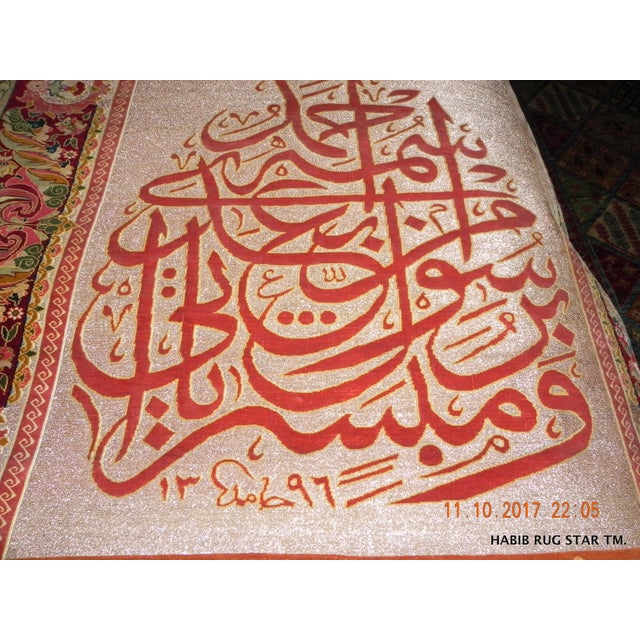 ومبشرا برسول يأتي من بعدي اسمه أحمد
١٣ حامد ٩٦
11.10.2017 22:05
HABIB RUG STAR TM.